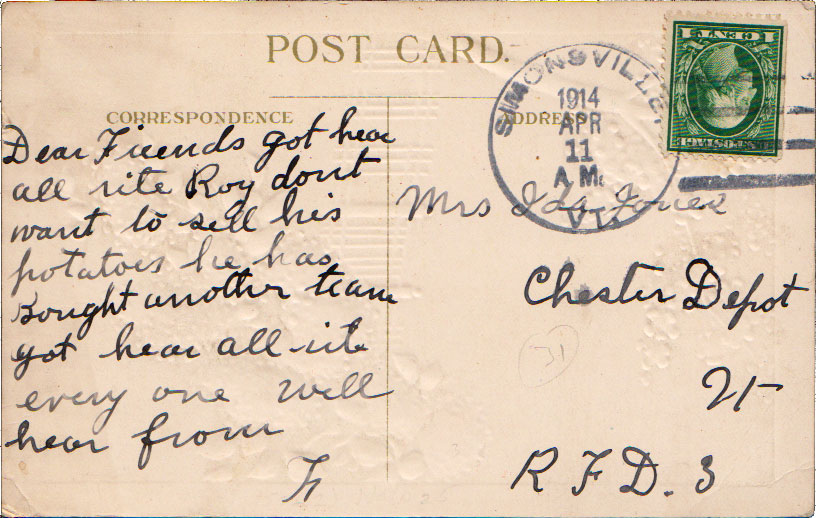 POST CARD.
CORRESPONDENCE
ADDRESS
SIMONSVILLE
1914
APR
11
A.M.
VT.
1 CENT 1
Dear Friends got hear
all rite Roy dont
want to sell his
potatoes he has
Bought another team
got hear all rite
every one well
hear from
Mrs Ida Jones
Chester Depot
Vt
R F D. 3
31